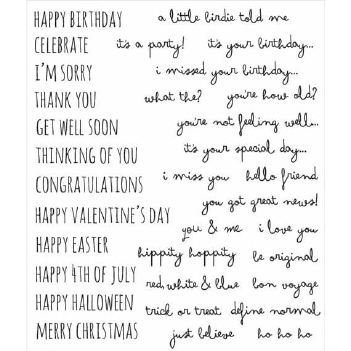 HAPPY BIRTHDAY
CELEBRATE
I'M SORRY
THANK YOU
GET WELL SOON
THINKING OF YOU
CONGRATULATIONS
HAPPY VALENTINE'S DAY
HAPPY EASTER
HAPPY 4TH OF JULY
HAPPY HALLOWEEN
MERRY CHRISTMAS
a little birdie told me
it's a party! it's your birthday...
i missed your birthday...
what the? you're how old?
you're not feeling well...
it's your special day...
i miss you hello friend
you got great news!
you & me i love you
hippity hoppity be original
red, white & blue bon voyage
trick or treat define normal
just believe ho ho ho